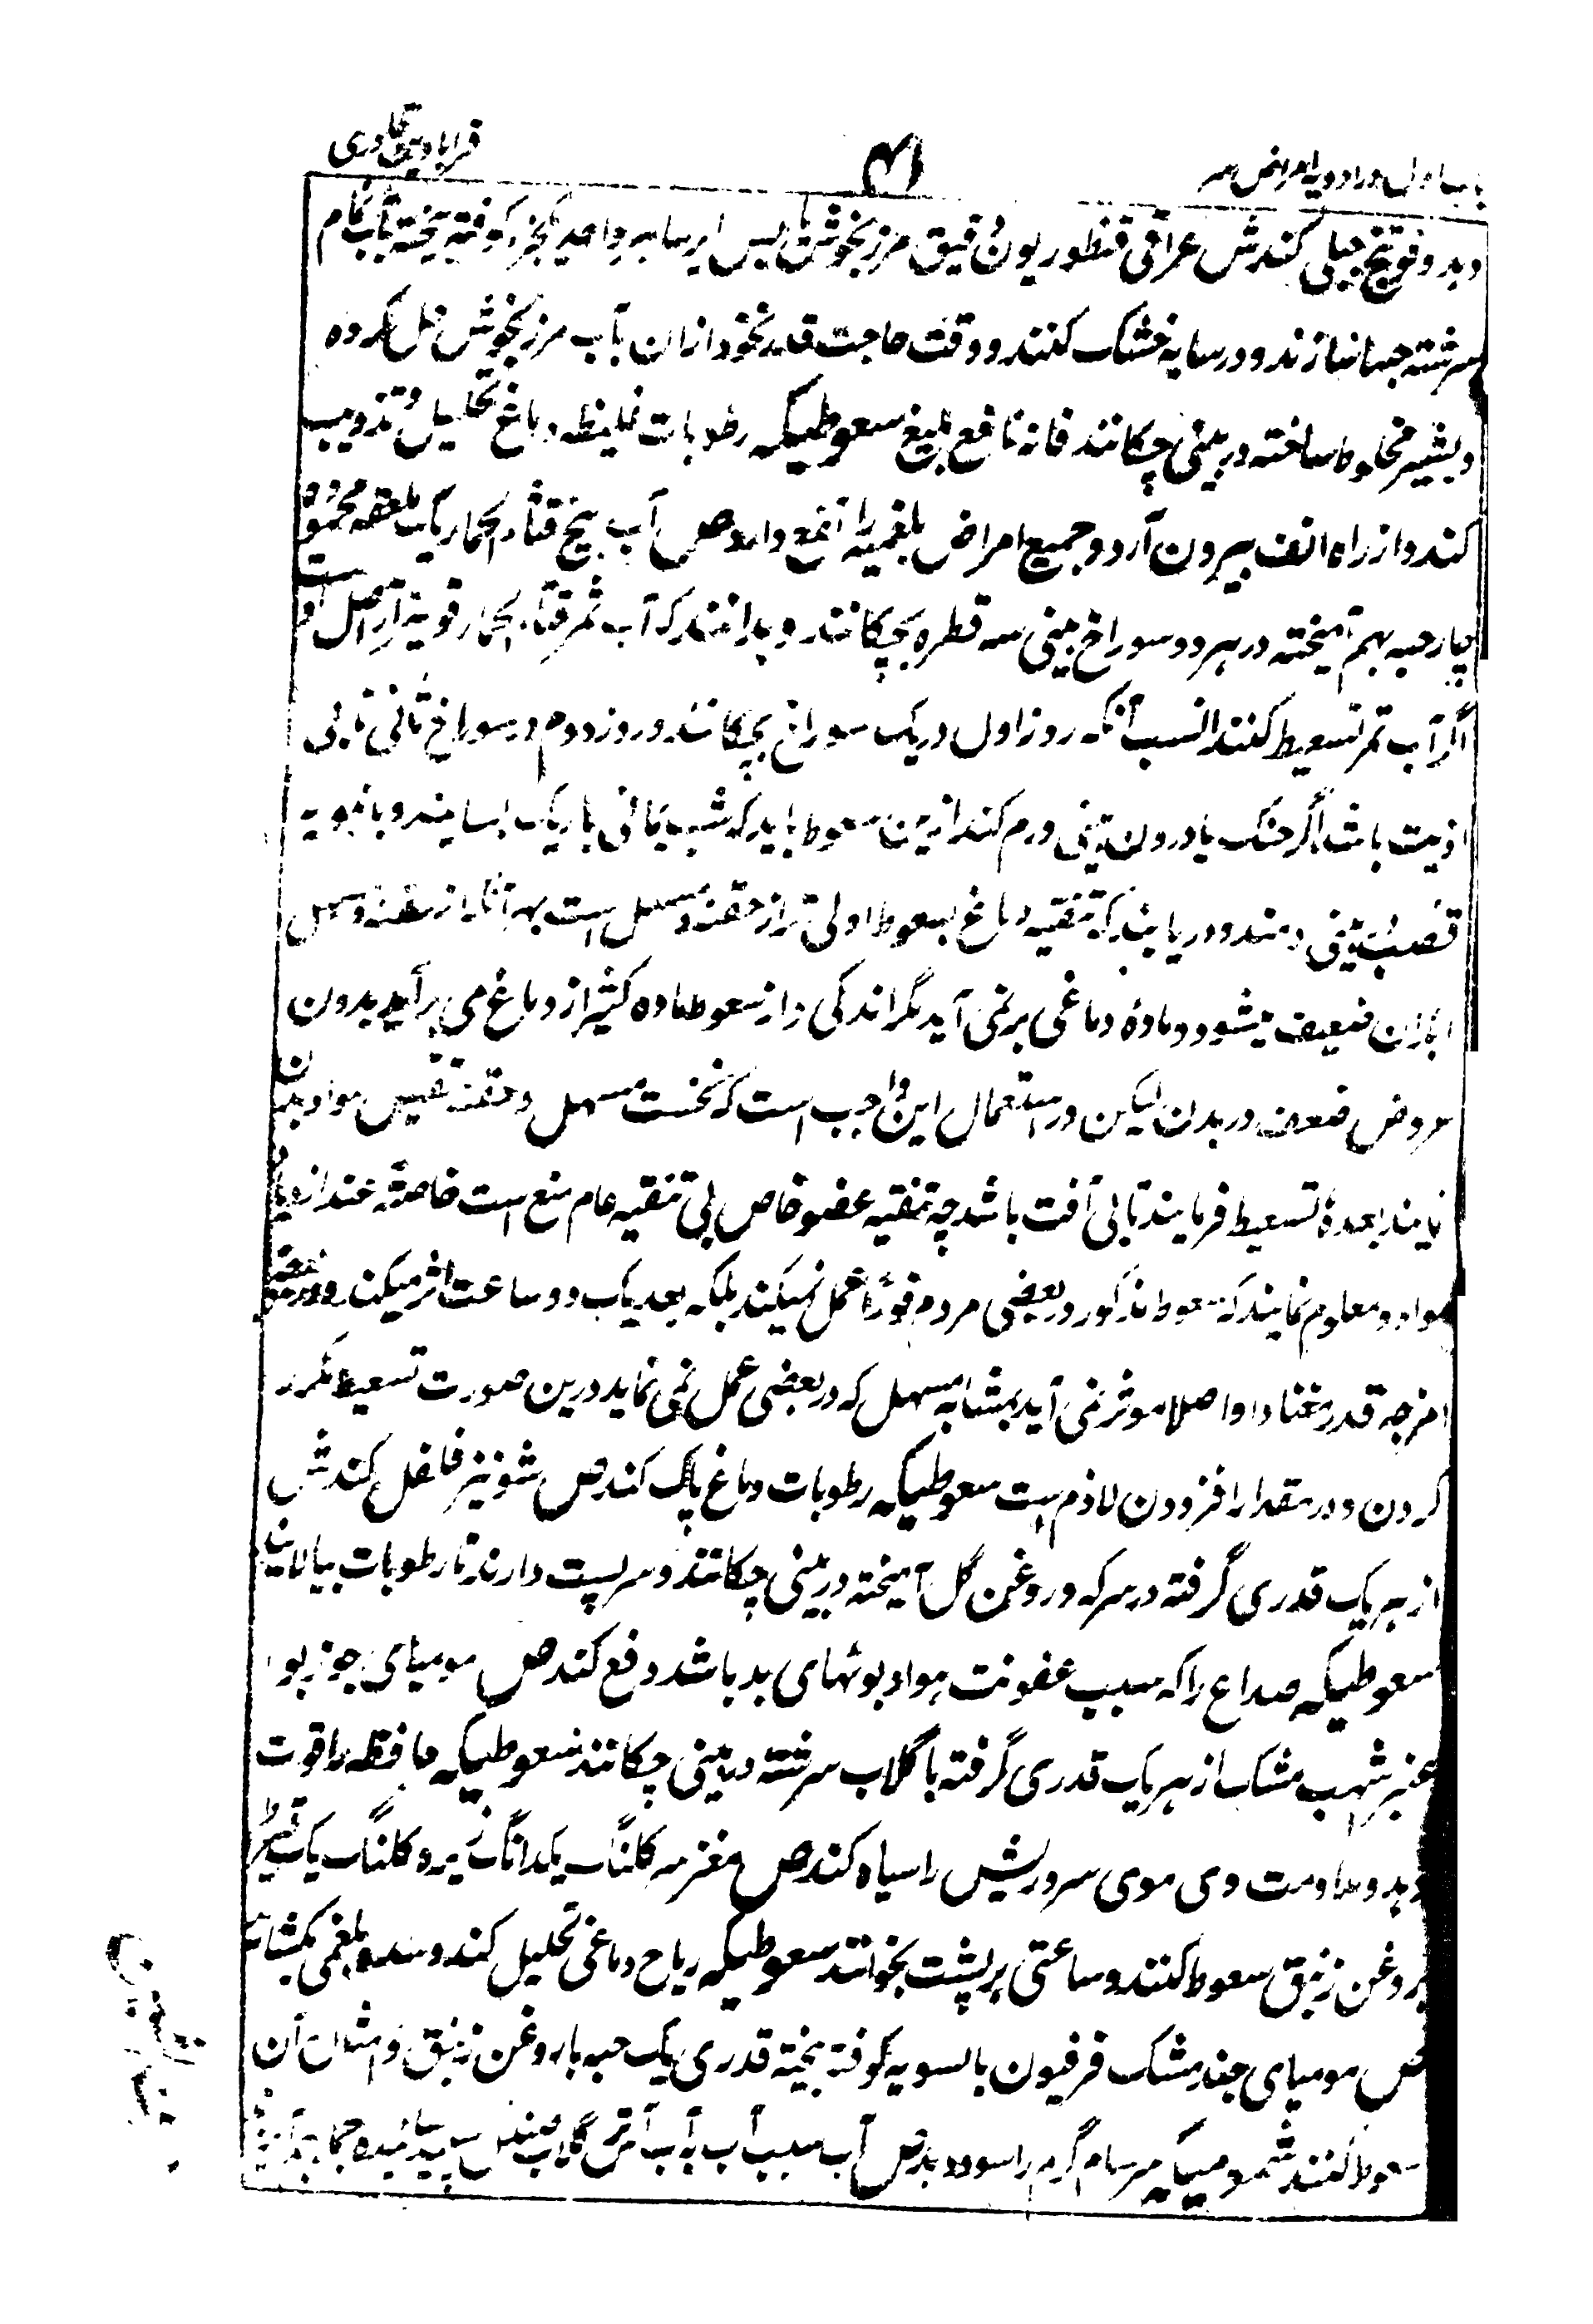 باب اول در ادویه امراض سر
۴۱
قرابادین قادری
دهد و فوتنج جبلی کندش عراقی قنطوریون دقیق مرزنجوش یابس ایرسا هر واحد یکجزء کوفته بیخته بآب نمام
سرشته حبها سازند و در سایه خشک کنند و وقت حاجت قدر نخود ازان بآب مرزنجوش حل کرده
و بشیر مخلوط ساخته در بینی چکانند فانه نافع بلیغ سعوطیکه رطوبات غلیظه دماغ تحلیل و تذویب
کند و از راه انف بیرون آرد و جمیع امراض بلغمیه را نفع دارد ص آب بیخ قثاء الحمار یک ملعقه
چار حبه بهم آمیخته در هر دو سوراخ بینی سه قطره بچکانند و بدانند که آب ثمر قثاء الحمار قویتر از اصل است و
اگر آب ثمر تسعیط کنند انسب آنکه روز اول در یک سوراخ بچکانند و روز دوم در سوراخ ثانی تا بی
اذیت باشد اگر حنک یا درون بینی ورم کند ازین سعوط باید که شب یمانی باریک بسایند و بانبوبه
قصب در بینی دمند و دریابند که تنقیه دماغ بسعوط اولی تر از حقنه و مسهل است بهر آنکه از حقنه و مسهل
ابدان ضعیف میشود و ماده دماغی بر نمی آید مگر اندکی و از سعوط ماده کثیر از دماغ می برآید بدون
عروض ضعف در بدن لیکن در استعمال این واجب است که نخست مسهل و حقنه تنقیص مواد بدن
نمایند بعده تسعیط فرمایند تا بی آفت باشد چه تنقیه عضو خاص بی تنقیه عام منع است خاصةً عند ازدیاد
مواد و معلوم نمایند که سعوط مذکور در بعضی مردم فوراً عمل نمیکند بلکه بعد یک دو ساعت اثر میکند و در بعضی
امزجه قدر معتاد او اصلا موثر نمی آید بمشابه مسهل که در بعضی عمل نمی نماید درین صورت تسعیط مکرر
کردن و در مقدار افزودن لازم است سعوطیکه رطوبات دماغ پاک کند ص شونیز فلفل کندش
از هر یک قدری گرفته در سرکه و روغن گل آمیخته در بینی چکانند و سر پست دارند تا رطوبات بپالاید
سعوطیکه صداع را که سبب عفونت هوا و بوئهای بد باشد دفع کند ص مومیای جوز بوا
عنبر اشهب مشک از هر یک قدری گرفته با گلاب سرشته در بینی چکانند سعوطیکه حافظه را قوت
دهد و مداومت وی موی سر و ریش را سیاه کند ص مغز سر کلنگ یکدانگ زهره کلنگ یک قیراط
بروغن زنبق سعوط کنند و ساعتی بر پشت بخوابند سعوطیکه ریاح دماغی تحلیل کند و سده بلغمی بکشاید
ص مومیای جند مشک فرفیون بالسویه کوفته بیخته قدری یک حبه با روغن زنبق و امثال آن
سعوط کنند شمومیکه سرسام گرم را سود دهد ص آب سیب آب به آب مرزش گلاب صندل سپید سائیده